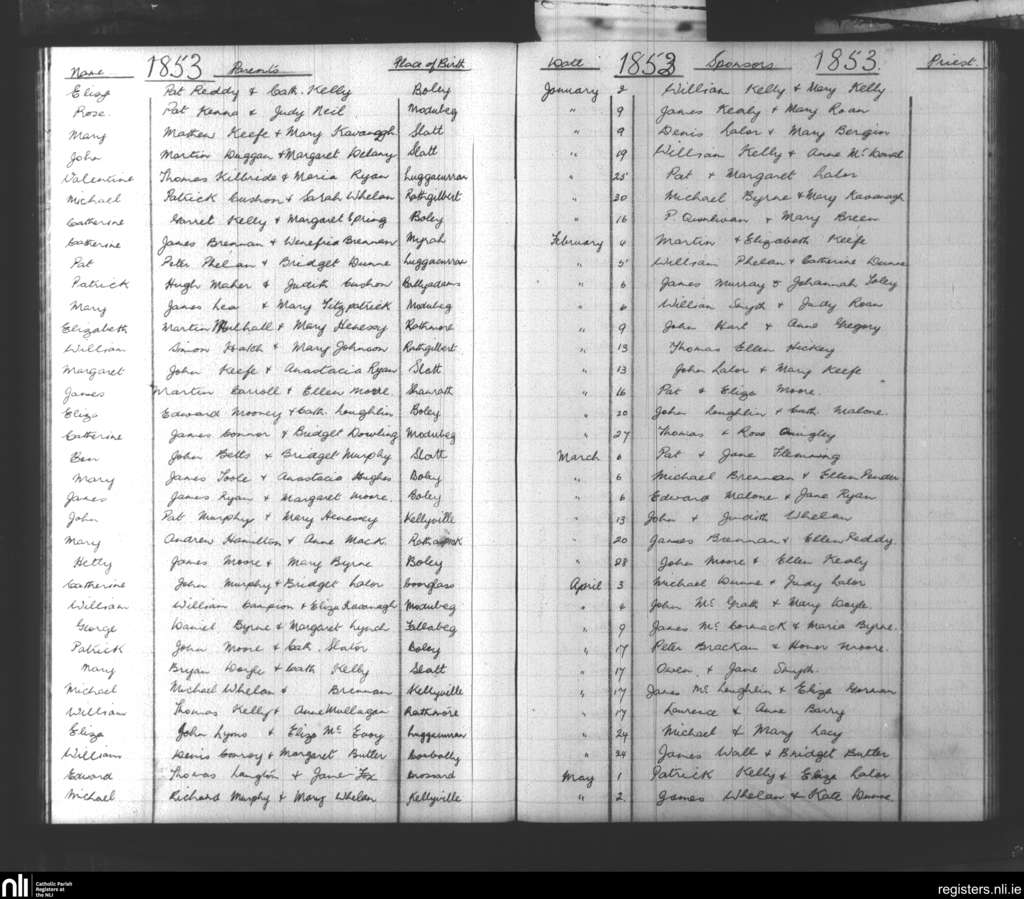 Name 1853 Parents Place of Birth Date 1853 Sponsors 1853. Priest
Eliza Pat Reddy & Cath. Kelly Boley January 2 William Kelly & Mary Kelly
Rose. Pat Kenna & Judy Neil Modubeg " 9 James Kealy & Mary Roan
Mary Mathew Keefe & Mary Kavanagh Slatt " 9 Denis Lalor & Mary Bergin
John Martin Duggan & Margaret Delany Slatt " 19 William Kelly & Anne
Valentine Thomas Kilbride & Maria Ryan Luggacurran " 25 Pat & Margaret Lalor
Michael Patrick Cushon & Sarah Whelan Rathgilbert " 30 Michael Byrne & Mary Kavanagh
Catherine Garret Kelly & Margaret Spring Boley " 16 P. & Mary Breen
Catherine James Brennan & Brennan Myrah February 4 Martin & Elizabeth Keefe
Pat Peter Phelan & Bridget Dunne Luggacurran " 5 William Phelan & Catherine Dunne
Patrick Hugh Maher & Judith Cushon Ballyadams " 6 James Murray & Johannah Foley
Mary James Lea & Mary Fitzpatrick Modubeg " 6 William Smyth & Judy Roan
Elizabeth Martin Mulhall & Mary Henessy Rathmore " 9 John Hart & Anne Gregory
William Simon Hatch & Mary Johnson Rathgilbert " 13 Thomas Ellen Hickey
Margaret John Keefe & Anastacia Ryan Slatt " 13 John Lalor & Mary Keefe
James Martin Carroll & Ellen Moore. Shanrath " 16 Pat & Eliza Moore.
Eliza Edward Mooney & Cath. Loughlin Boley " 20 John Loughlin & Cath. Malone.
Catherine James Connor & Bridget Dowling Modubeg " 27 Thomas & Rose Quigley
Ben John Betts & Bridget Murphy Slatt March 6 Pat & Jane Flemming
Mary James Toole & Anastacia Hughes Boley " 6 Michael Brennan & Ellen Pender
James James Ryan & Margaret Moore. Boley " 6 Edward Malone & Jane Ryan
John Pat Murphy & Mary Henessey Kellyville " 13 John & Judith Whelan
Mary Andrew Hamilton & Anne Mack. " 20 James Brennan & Ellen Reddy
Hetty James Moore & Mary Byrne Boley " 28 John Moore & Ellen Kealy
Catherine John Murphy & Bridget Lalor Coorglass April 3 Michael Dunne & Judy Lalor
William William Campion & Eliza Kavanagh Modubeg " 4 John Mc Grath & Mary Doyle.
George Daniel Byrne & Margaret Lynch Fallabeg " 9 James Mc Cormack & Maria Byrne.
Patrick John Moore & Cath. Slator Boley " 17 Peter Brackan & Honor Moore.
Mary Bryan Doyle & Cath Kelly Slatt " 17 Owen & Jane Smyth.
Michael Michael Whelan & Brennan Kellyville " 17 James Mc Loughlin & Eliza Gorman
William Thomas Kelly & Anne Mullagan Rathmore " 17 Laurence & Anne Barry
Eliza John Lyons & Eliza Mc Evoy Luggacurran " 24 Michael & Mary Lacy
William Denis Conroy & Margaret Butter Coorbally " 24 James Wall & Bridget Butter
Edward Thomas Langton & Jane Fox Crossard May 1 Patrick Kelly & Eliza Lalor
Michael Richard Murphy & Mary Whelan Kellyville " 2 James Whelan & Kate Dunne.
nli Catholic Parish
Registers at
the NLI
registers.nli.ie